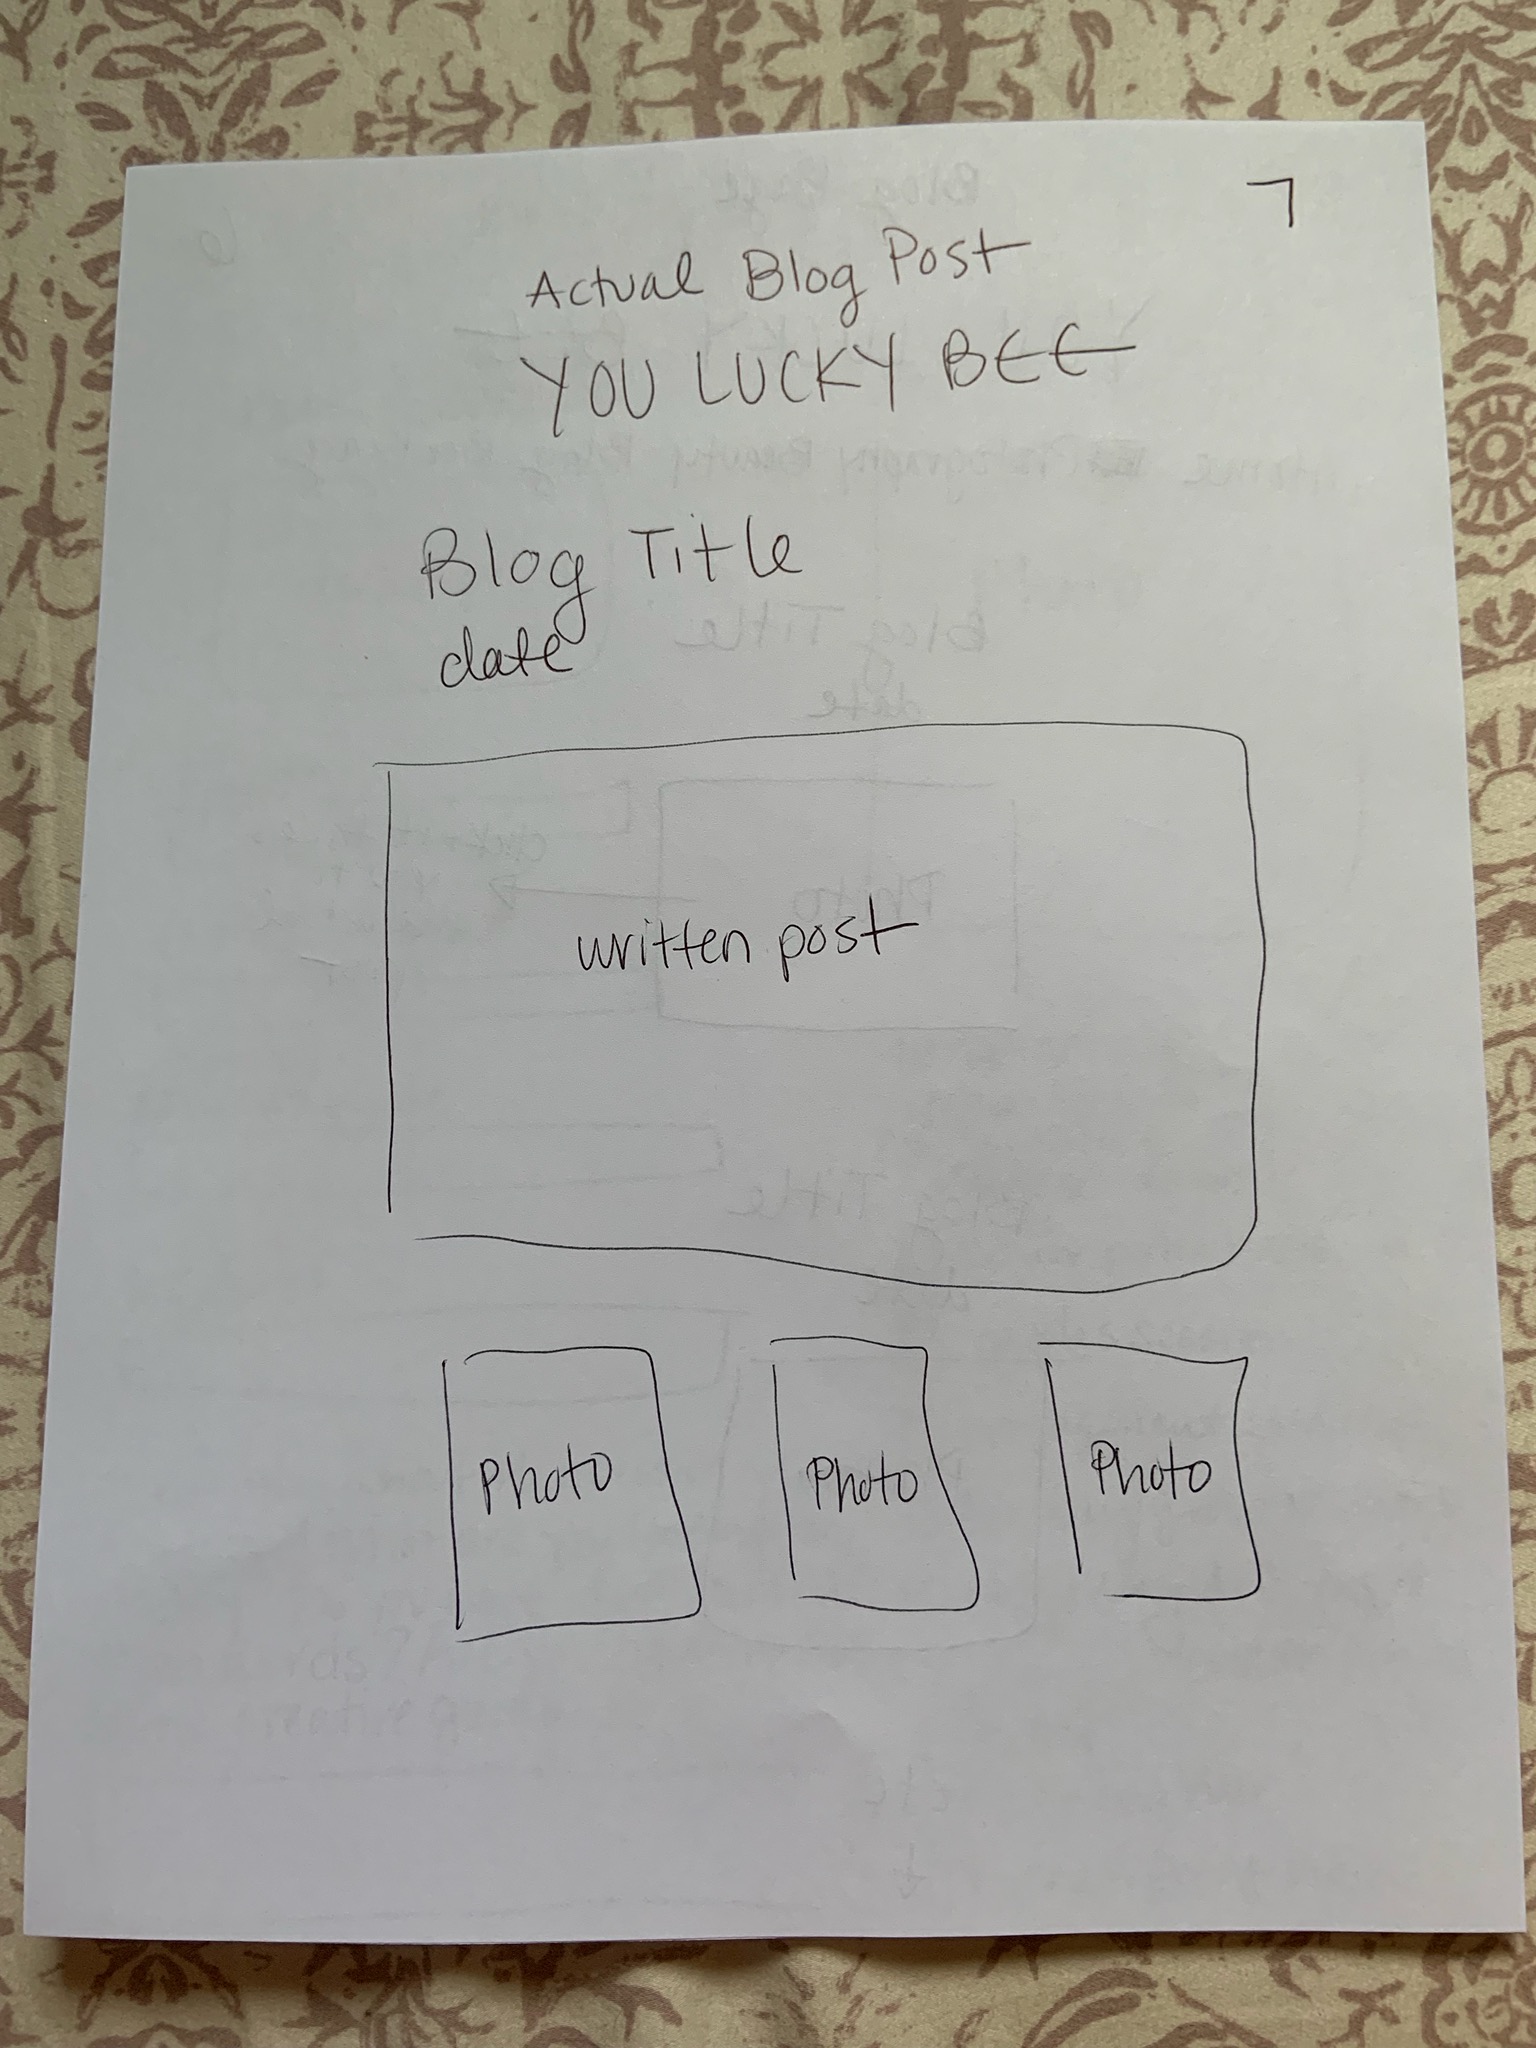 7
Actual Blog Post
YOU LUCKY BEE
Blog Title
date
written post
Photo Photo Photo